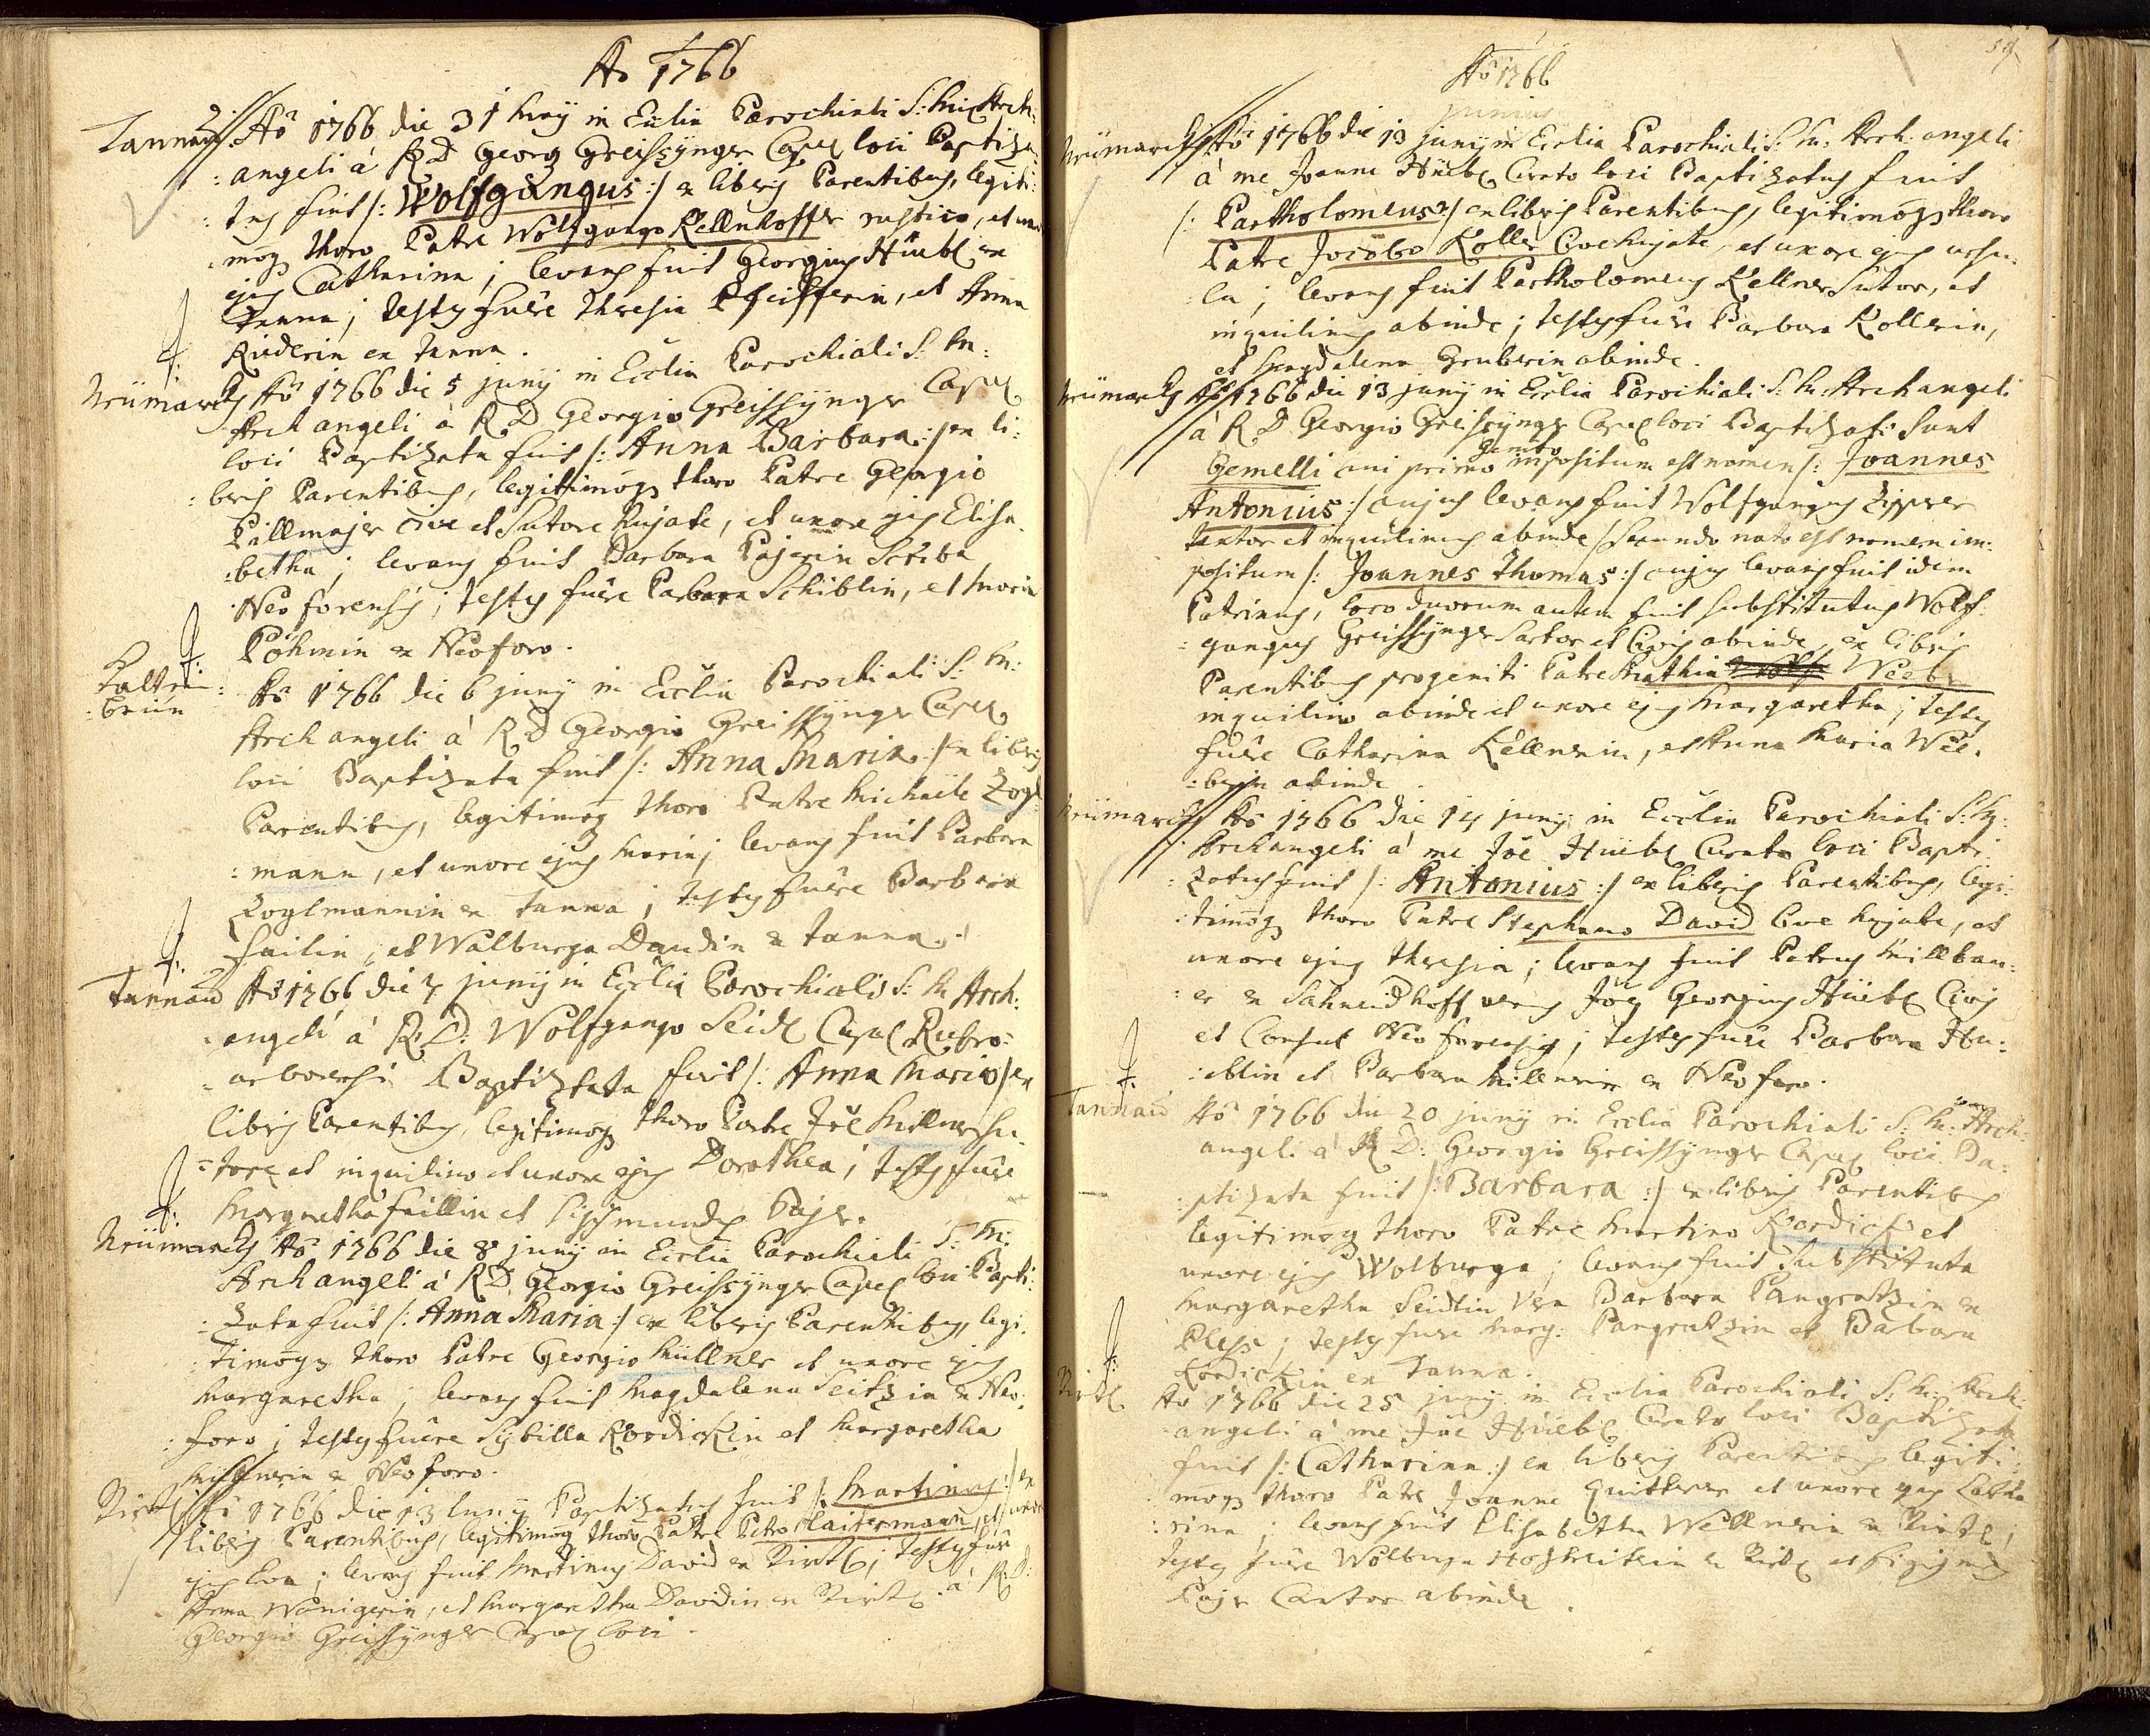 Ao 1766
Tannau Aõ 1766 die 31 Maij in Ecclia Parochiali S: Mich Arch:
:angeli à R D Georg Greissÿnger Capel loci Baptiza:
:tus fuit /: Wolfgangus :/ ex liberis Parentibus, legiti:
:moqз thoro Patre Wolfgango Kellnhoffer rustico, et uxore
ejus Catharina; levans fuit Georgius Hüebl ex
Tanna; testes fuêre Theresia Pfeifferin, et Anna
Riederin ex Tanna.
Neümarckh Aõ 1766 die 5 junij in Ecclia Parochiali S: M:
Archangeli à R D Georgio Greissÿnger Capel
loci Baptizata fuit /: Anna Barbara :/ ex li:
:beris Parentibus, legitimoqз thoro Patre Georgio
Pällmajer cive et Sutore hujate, et uxore ejus Elisa:
:betha; levans fuit Barbara Pajerin Scriba
Neoforensis; testes fuêre Barbara Schiblin, et Maria
Pöhmin ex Neoforo.
Kaltenbrün Aõ 1766 die 6 junij in Ecclia Parochiali S: M:
Archangeli à R D Georgio Greissÿnger Capel
loci Baptizata fuit /: Anna Maria :/ ex liberis
Parentibus, legitimoqз thoro Patre Michaele Zogl:
:mann, et uxore ejus Maria; levans fuit Barbara
Zoglmannin ex Tanna; testes fuêre Barbara
Failin, et Walburga Daudin ex Tanna.
Tannau Aõ 1766 die 7 junij in Ecclia Parochiali S: M Arch:
:angeli à R: D: Wolfgango Seidl Capel Rubro:
:arborensi Baptizata fuit /: Anna Maria :/ ex
liberis Parentibus, legitimoqз thoro Patre Jöe Millner Su:
:tore et inquilino et uxore ejus Dorothea; testes fuêre
Margaretha Faillin et Sigismundus Pajer.
Neümarckh Aõ 1766 die 8 junij in Ecclia Parochiali S: M:
Archangeli à R D Georgio Greissÿnger Capel loci Bapti:
:zata fuit /: Anna Maria :/ ex liberis Parentibus, legi:
:timoqз thoro Patre Georgio Müllner et uxore ejus
Margaretha; levans fuit Magdalena Seitzin ex Neo:
:foro; testes fuêre Sÿbilla Kordickin et Margaretha
Millnerin ex Neoforo.
Aõ 1766 die 13 Junij Baptizatus fuit /: Martinus :/ ex
liberis Parentibus, legitimoqз thoro Patre Petro Haidermann, et uxore
ejus Eva; levans fuit Martinus David; testes fuêre
Anna, et Margaretha Davidin à R: D:
Georgio Greissÿnger Capel loci.
Aõ 1766
Junius
Neümarckh Aõ 1766 die 13 junij in Ecclia Parochiali S: M: Archangeli
à me Joanne Hüebl Curato loci Baptizatus fuit
/: Partholomeus :/ ex liberis Parentibus, legitimoqз thoro
Patre Jocobo Koller Cive hujate, et uxore ejus Ursu:
:la; levans fuit Partholomeus Kellner Sutor, et
inquilinus abinde; testes fuêre Barbara Kollerin,
et Magdalena Gruberin abinde.
Neümarckh Aõ 1766 die 13 junij in Ecclia Parochiali S: M: Archangeli
à R D Georgio Greissÿnger Capel loci Baptizati sunt
Gemelli cui primo genito impositum est nomen /: Joannes
Antonius :/ cujus levans fuit Wolfgangus Zipprer
textor et inquilinus abinde / Secundo nato est nomen im:
:positum /: Joannes Thomas :/ cujus levans fuit idem
Patrinus, loco duorum autem fuit substitutus Wolf:
:gangus Greissÿnger Sartor et Civis abinde, ex liberis
Parentibus progeniti Patre Mathia Weeber
inquilino abinde et uxore ejus Margaretha; testes
fuêre Catharina Kellnerin, et Anna Maria Wee:
:berin abinde.
Neümarckh Aõ 1766 die 14 junij in Ecclia Parochiali S: M:
Archangeli à me Jöe Hüebl Curato loci Bapti:
:zatus fuit /: Antonius :/ ex liberis Parentibus, legi:
:timoqз thoro Patre Stephano David Cive hujate, et
uxore ejus Theresia; levans fuit Petrus Millbau:
:er ex Schmidhoff Jöes Georgius Hüebl Civis
et Consul Neoforensis; testes fuêre Barbara Hu:
:eblin et Barbara Millnerin ex Neoforo.
Tannau Aõ 1766 die 20 junij in Ecclia Parochiali S: M: Arch:
angeli à R D: Georgio Greissÿnger Capel loci Ba:
:ptizata fuit /: Barbara :/ ex liberis Parentibus
legitimoqз thoro Patre Martino Kordick et
uxore ejus Wolburga; levans fuit substituta
Margaretha Seidlin Barbara Pangratzin ex
Pless; testes fuêre Marg: Pangratzin et Barbara
Kordickin ex Tanna.
Aõ 1766 die 25 junij in Ecclia Parochiali S: M: Arch:
:angeli à me Jöe Hüebl Curato loci Baptizata
fuit /: Catharina :/ ex liberis Parentibus legiti:
:moqз thoro Patre Joanne Quitterer et uxore ejus Catha:
:rina; levans fuit Elisabetha Wellnerin;
testes fuêre Walburga et Sigismundus
Pajer Cantor abinde.